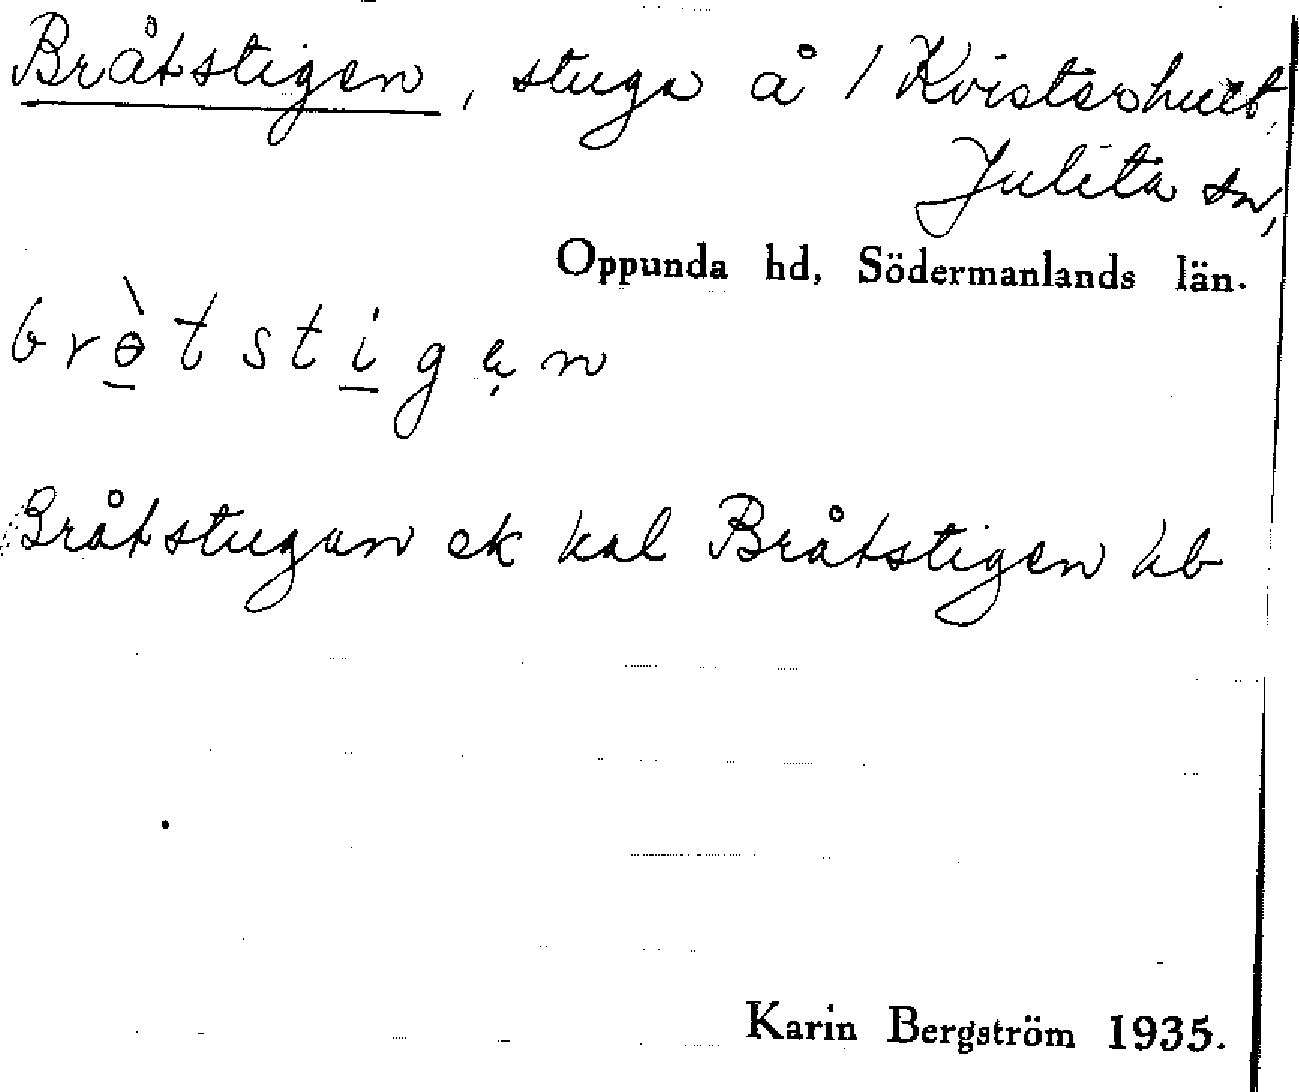 Bråtstigen, stuga å / Kvistershult,
Julita sn,
Oppunda hd, Södermanlands län.
brɵ̱̀tsti̱gẹn
Bråtstugan ek kal Bråtstigen hb
Karin Bergström 1935.